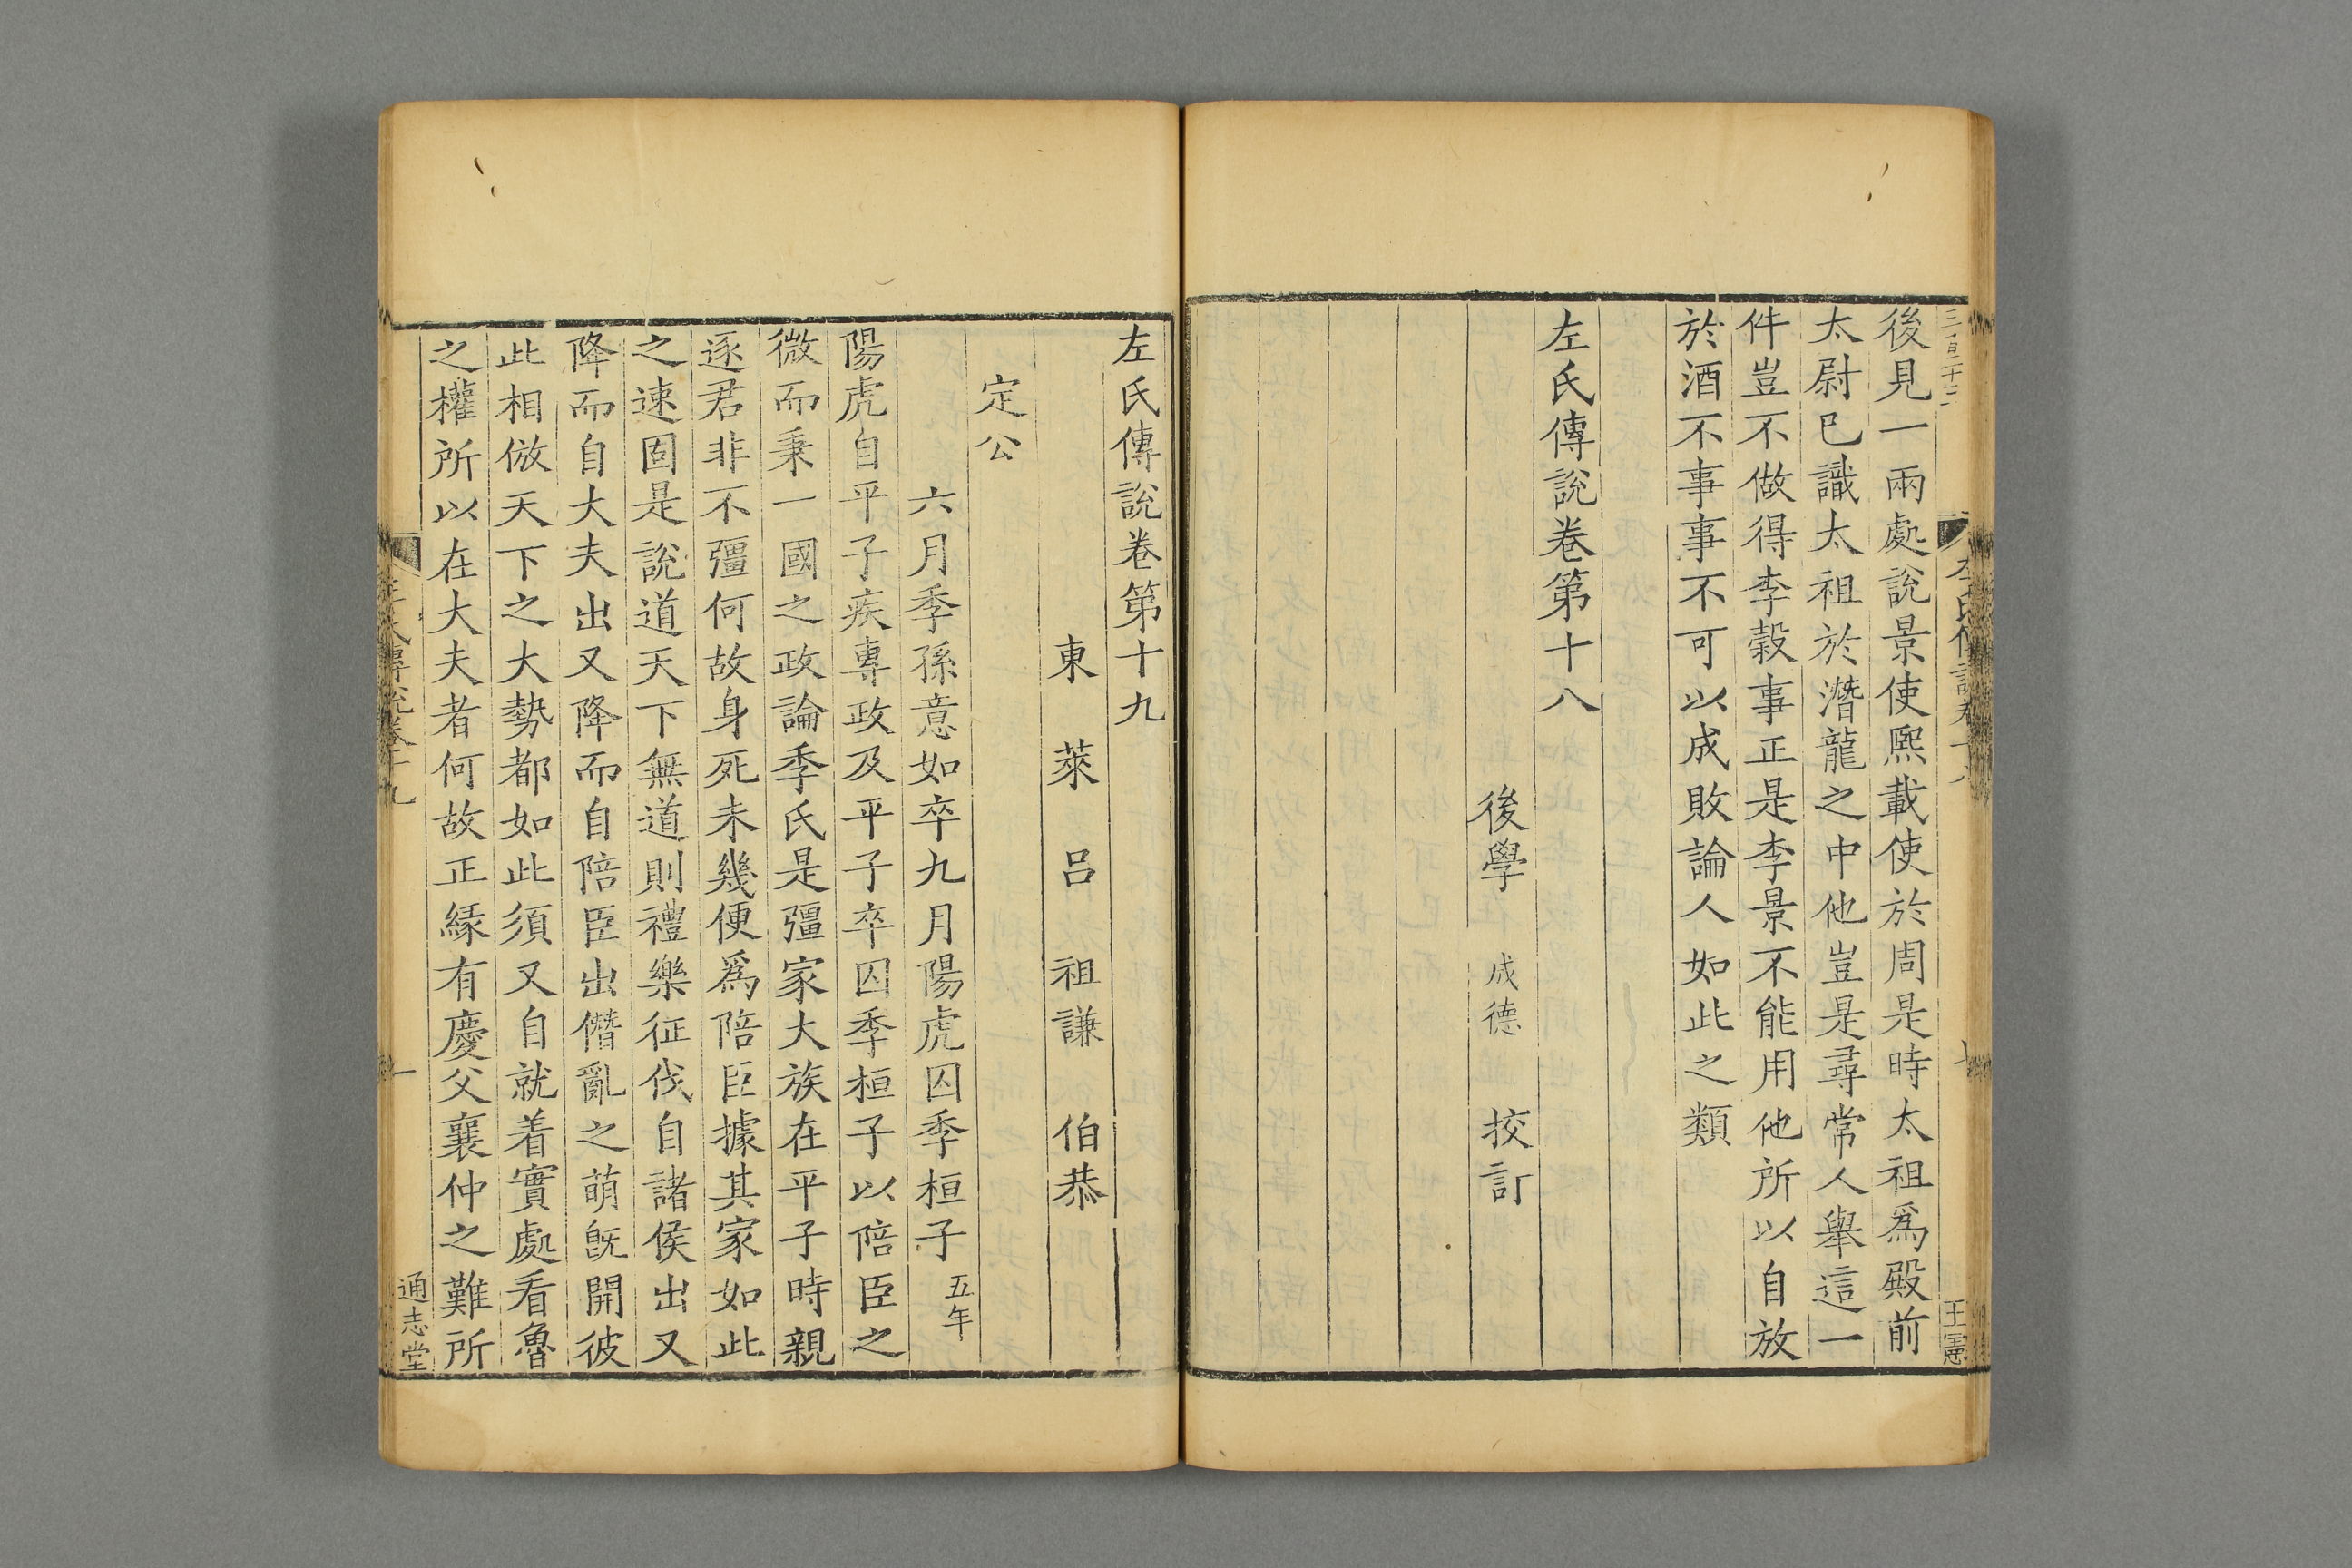 後見一兩處說景使熙載使於周是時太祖爲殿前
太尉已識太祖於潛龍之中他豈是尋常人舉這一
件豈不做得李穀事正是李景不能用他所以自放
於酒不事事不可以成敗論人如此之類
左氏傳說卷第十八
後學 成德 挍訂
王憲
左氏傳說卷第十九
東萊呂 祖謙 伯恭
定公
六月季孫意如卒九月陽虎囚季桓子 五年
陽虎自平子疾專政及平子卒囚季桓子以陪臣之
微而秉一國之政論季氏是彊家大族在平子時親
逐君非不彊何故身死未幾便爲陪臣據其家如此
之速固是說道天下無道則禮樂征伐自諸侯出又
降而自大夫出又降而自陪臣出僭亂之萌旣開彼
此相倣天下之大勢都如此須又自就着實處看魯
之權所以在大夫者何故正緣有慶父襄仲之難所
左氏傳說卷十九 一
通志堂